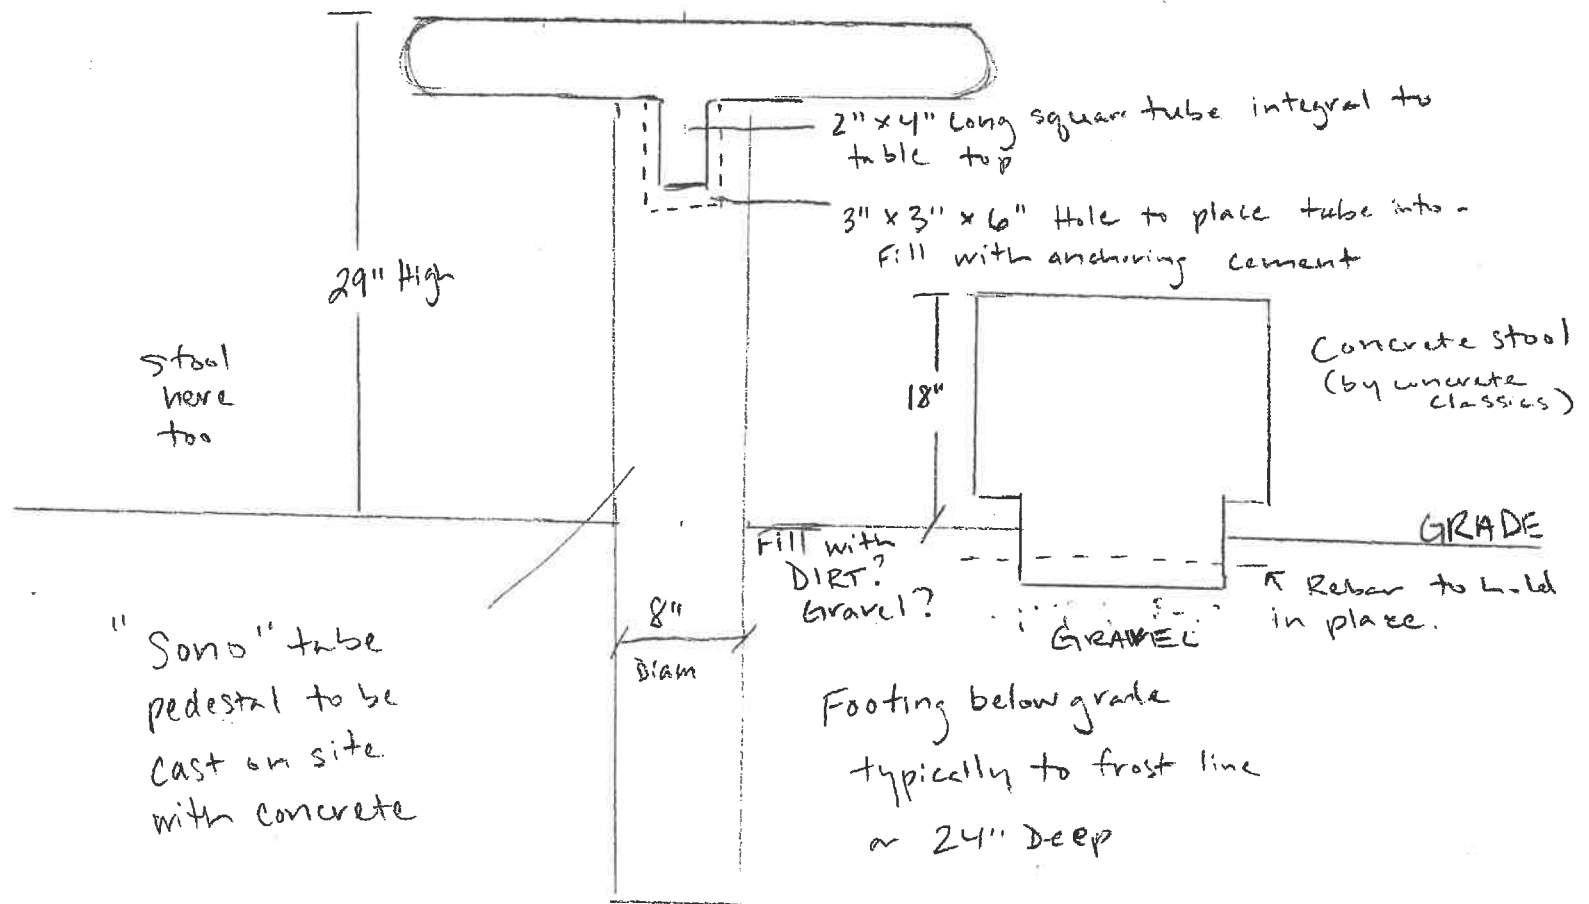 2" x 4" Long square tube integral to
table top
3" x 3" x 6" Hole to place tube into -
Fill with anchoring cement
29" High
stool
here
too
18"
Concrete stool
(by concrete
classics)
GRADE
Fill with
DIRT?
Gravel?
Rebar to hold
in place.
GRAVEL
8"
Diam
"Sono" tube
pedestal to be
cast on site
with concrete
Footing below grade
typically to frost line
or 24" Deep